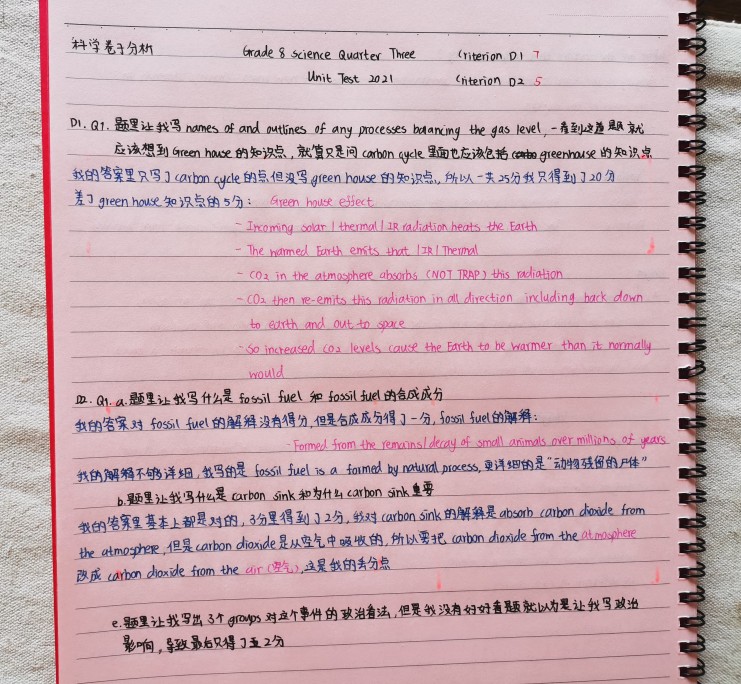 科学卷子分析 Grade 8 science Quarter Three Criterion D1 7
Unit Test 2021 Criterion D2 5
D1. Q1. 题里让我写names of and outlines of any processes balancing the gas level, 一看到这道题就
应该想到Green house的知识点, 就算只是问carbon cycle里面也应该包括 greenhouse的知识点
我的答案里只写了carbon cycle的点但没写green house的知识点, 所以一共25分我只得到了20分
差了green house知识点的5分: Green house effect
- Incoming solar / thermal / IR radiation heats the Earth
- The warmed Earth emits that / IR / Thermal
- CO2 in the atmosphere absorbs (NOT TRAP) this radiation
- CO2 then re-emits this radiation in all direction including back down
to earth and out to space
- So increased CO2 levels cause the Earth to be warmer than it normally
would
D2. Q1. a. 题里让我写什么是fossil fuel和fossil fuel的合成成分
我的答案对fossil fuel的解释没有得分, 但是合成成分得了一分, fossil fuel的解释:
- Formed from the remains/decay of small animals over millions of years
我的解释不够详细, 我写的是fossil fuel is a formed by natural process, 更详细的是"动物残留的尸体"
b. 题里让我写什么是carbon sink和为什么carbon sink重要
我的答案里基本上都是对的, 3分里得到了2分, 我对carbon sink的解释是absorb carbon dioxide from
the atmosphere, 但是carbon dioxide是从空气中吸收的, 所以要把carbon dioxide from the atmosphere
改成carbon dioxide from the air (空气), 这是我的丢分点
e. 题里让我写出3个groups对这个事件的政治看法, 但是我没有好好看题就以为是让我写政治
影响, 导致最后只得了2分